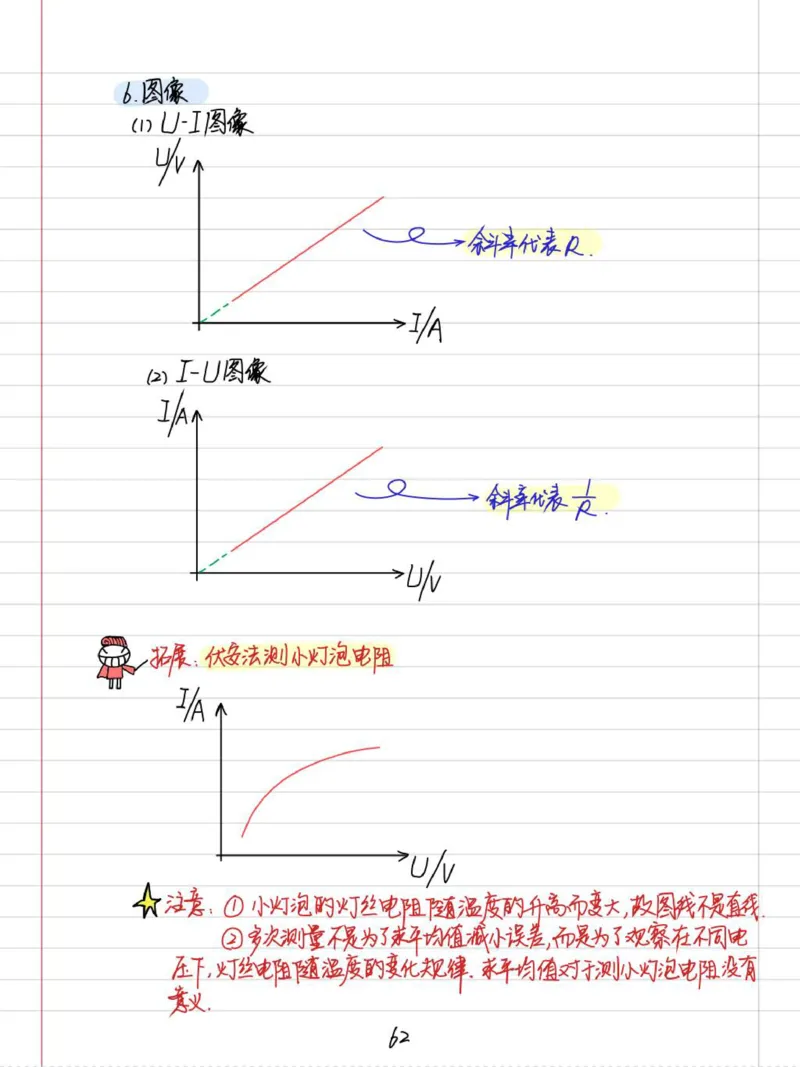 6.图像
(1) U-I图像
U/V
斜率代表R.
I/A
(2) I-U图像
I/A
斜率代表1/R.
U/V
拓展:伏安法测小灯泡电阻
I/A
U/V
注意:①小灯泡的灯丝电阻随温度的升高而变大,故图线不是直线.
②多次测量不是为了求平均值减小误差,而是为了观察在不同电
压下,灯丝电阻随温度的变化规律.求平均值对于测小灯泡电阻没有
意义.
62